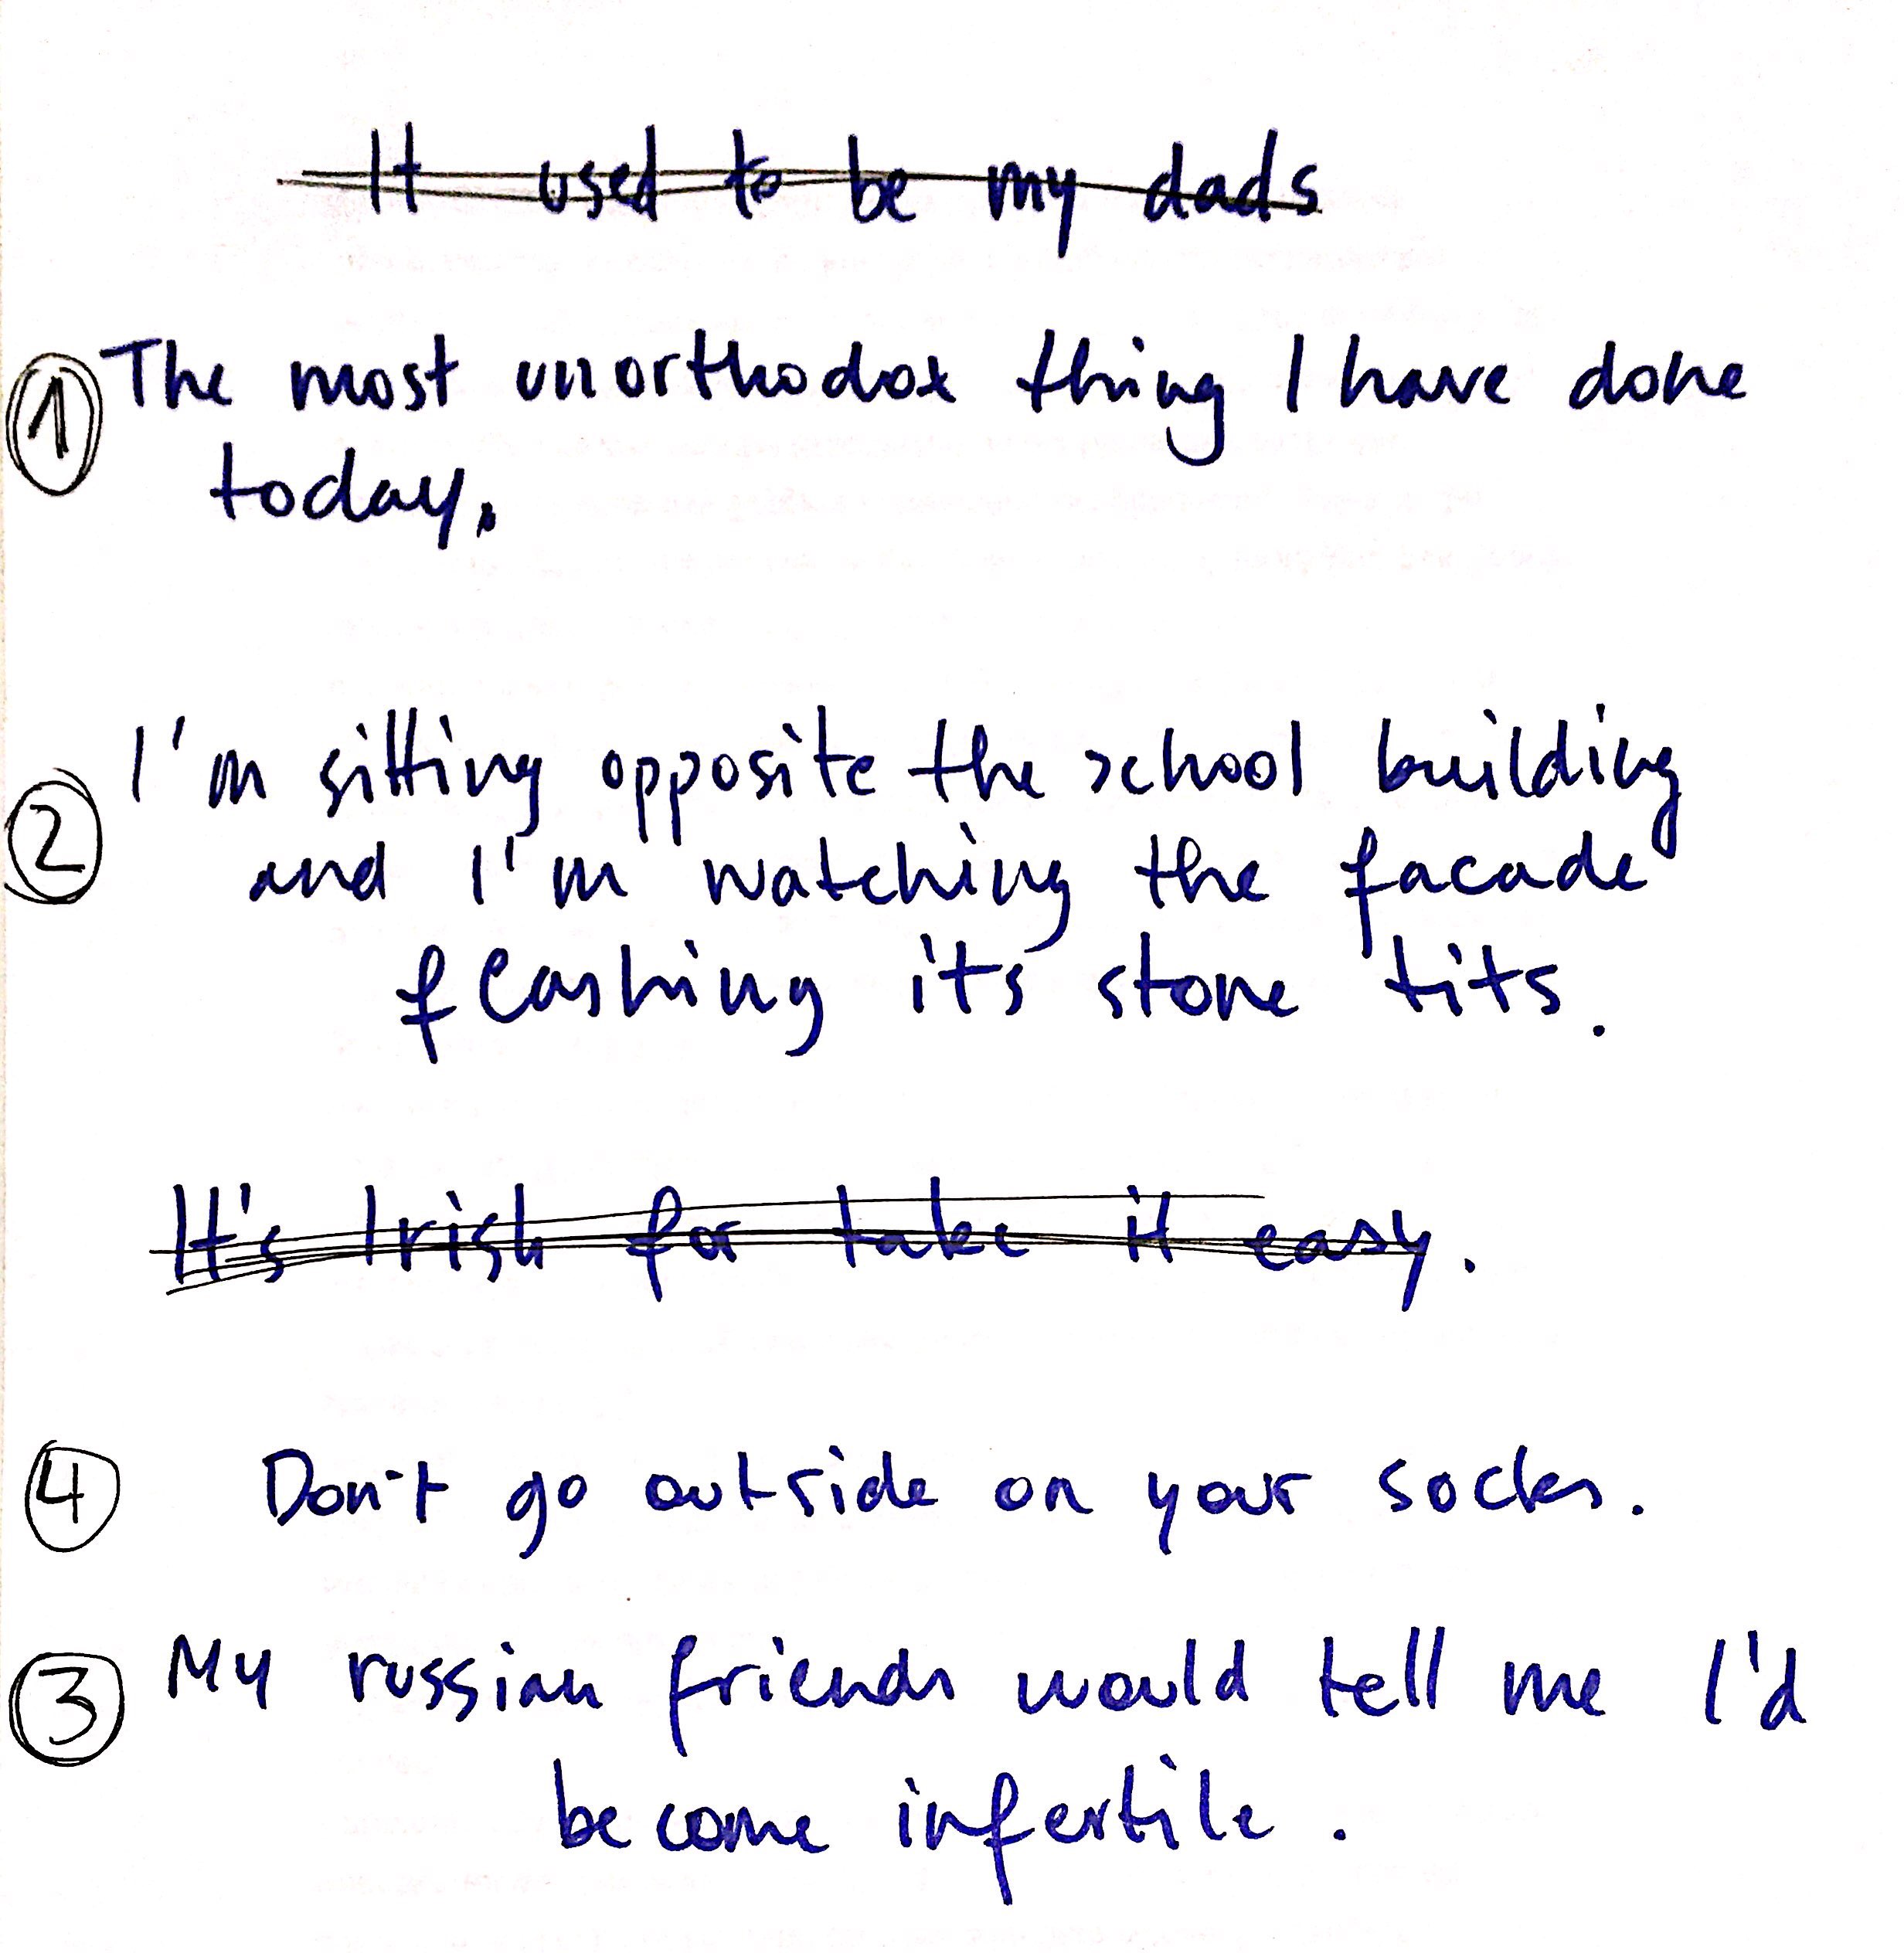 It used to be my dads
① The most unorthodox thing I have done
today.
② I'm sitting opposite the school building
and I'm watching the facade
flashing its stone tits.
It's Irish for take it easy.
④ Don't go outside on your socks.
③ My russian friends would tell me I'd
become infertile.